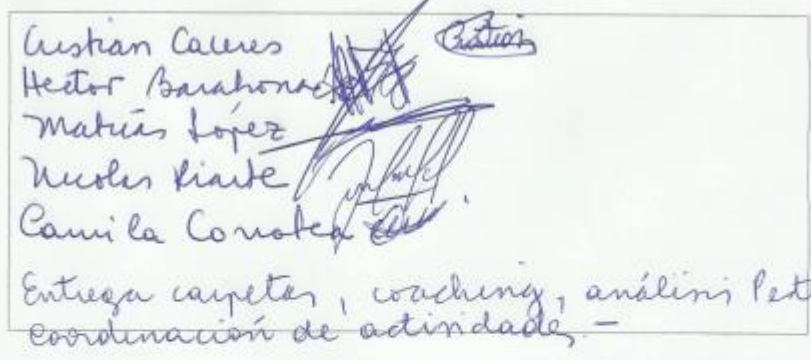 Cristian Caceres Cristian
Hector Barahona
Matias López
Nicolas Riarte
Camila
Entrega carpetas, coaching, análisis Pest
Coordinación de actividades.-